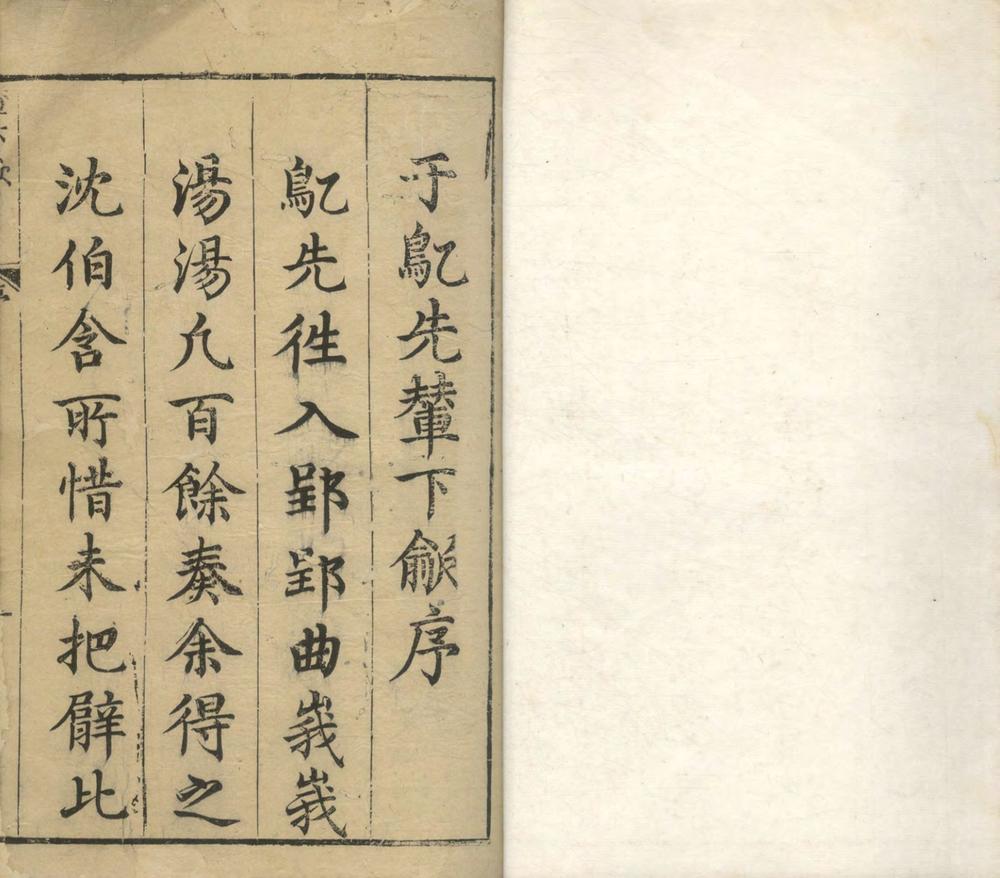 于鳦先輦下歈序
鳦先徃入郢郢曲峩峩
湯湯凢百餘奏余得之
沈伯含所惜未把臂比